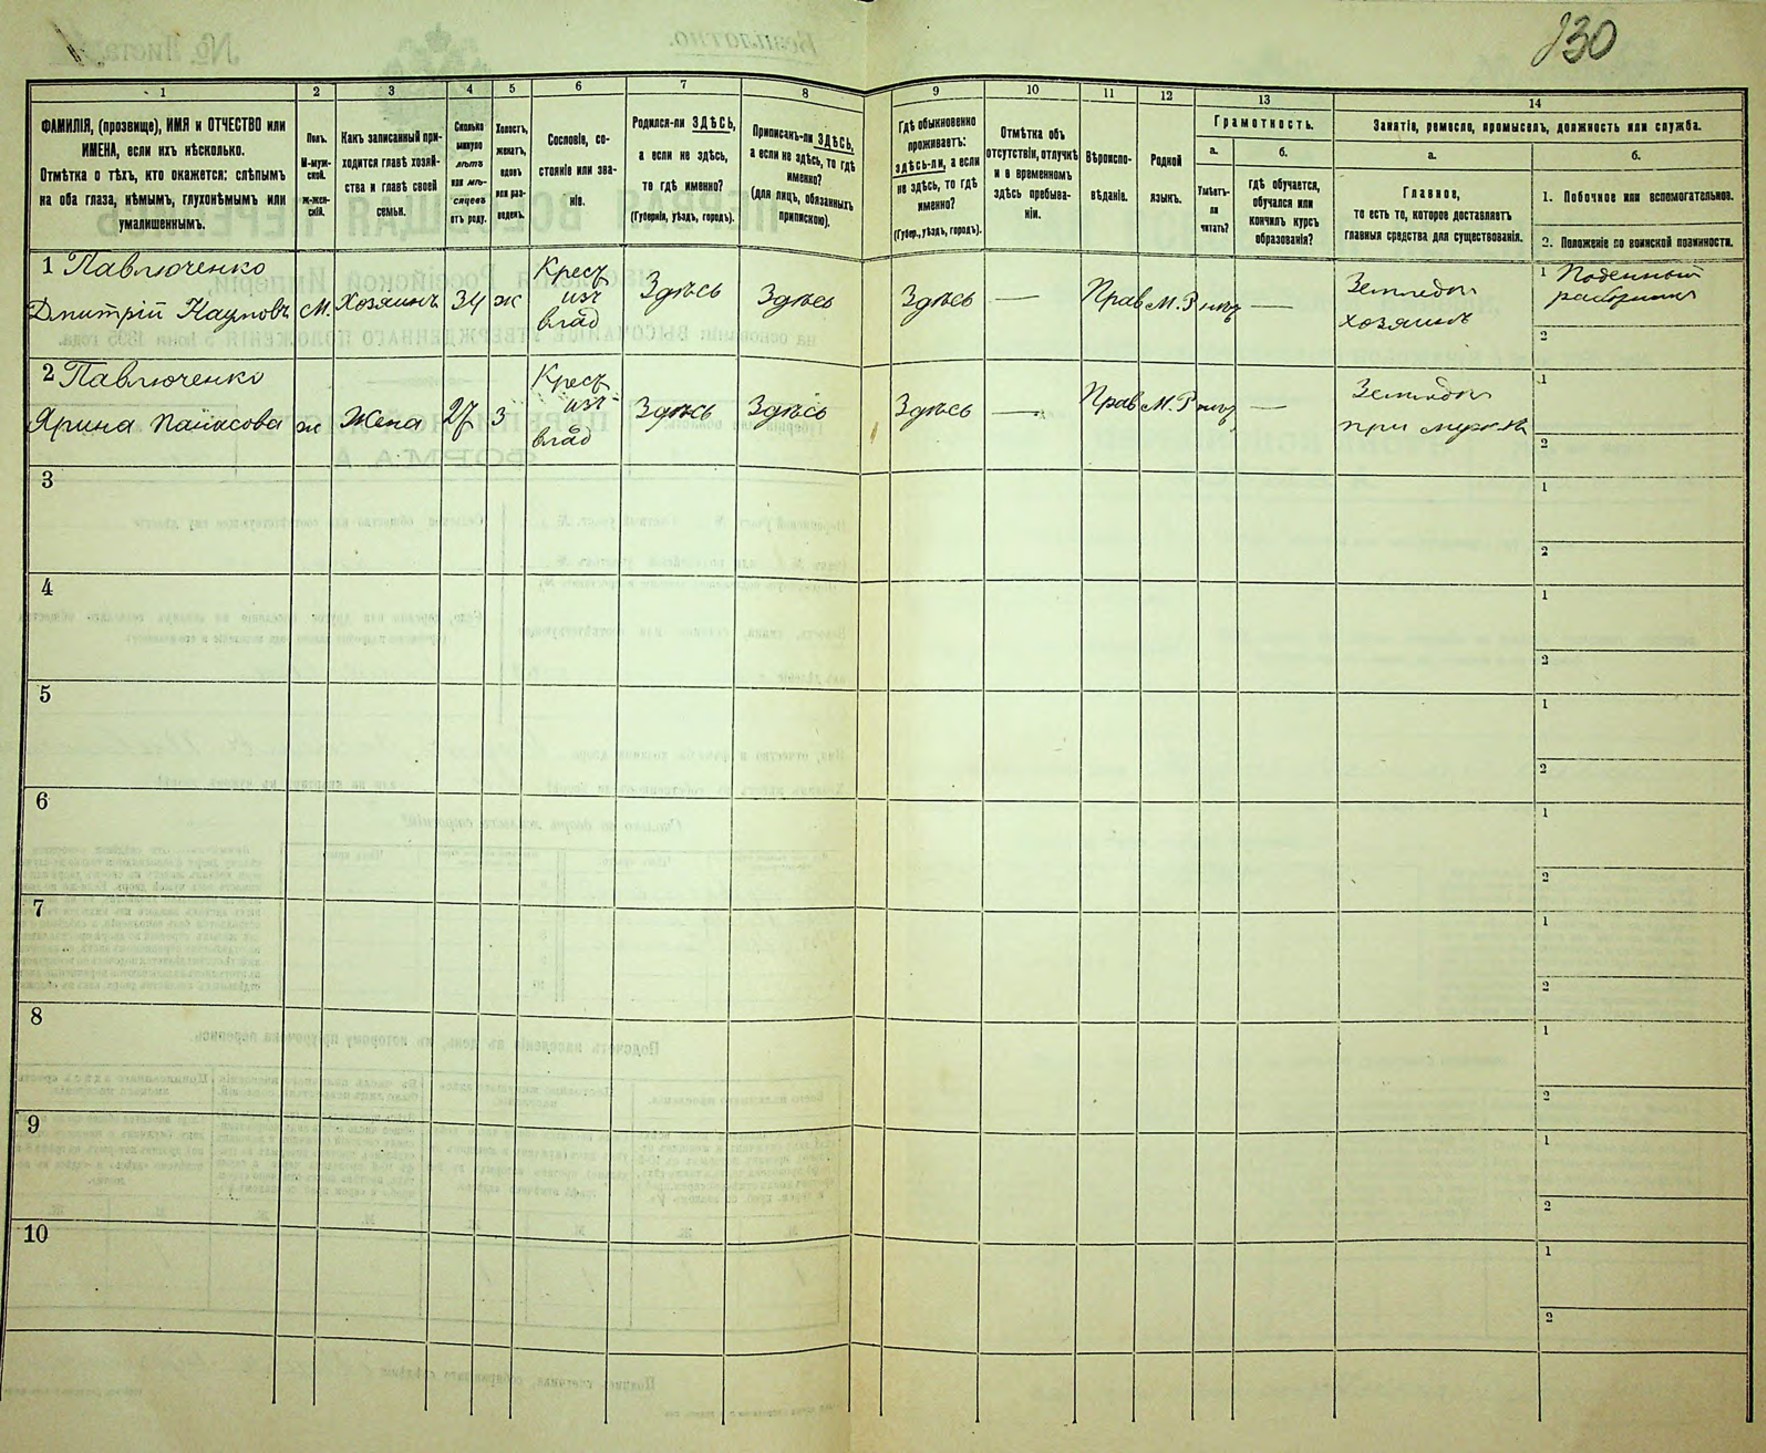 130
1 2 3 4 5 6 7 8 9 10 11 12 13 14
ФАМИЛІЯ, (прозвище), ИМЯ и ОТЧЕСТВО или
ИМЕНА, если ихъ нѣсколько.
Отмѣтка о тѣхъ, кто окажется: слѣпымъ
на оба глаза, нѣмымъ, глухонѣмымъ или
умалишеннымъ.
Полъ.
М-муж-
ской.
Ж-жен-
скій.
Какъ записанный при-
ходится главѣ хозяй-
ства и главѣ своей
семьи.
Сколько
минуло
лѣтъ
или мѣ-
сяцевъ
отъ роду.
Холостъ,
женатъ,
вдовъ
или раз-
веденъ.
Сословіе, со-
стояніе или зва-
ніе.
Родился-ли ЗДѢСЬ,
а если не здѣсь,
то гдѣ именно?
(Губернія, уѣздъ, городъ).
Приписанъ-ли ЗДѢСЬ,
а если не здѣсь, то гдѣ
именно?
(для лицъ, обязанныхъ
припискою).
Гдѣ обыкновенно
проживаетъ:
здѣсь-ли, а если
не здѣсь, то гдѣ
именно?
(Губер., уѣздъ, городъ).
Отмѣтка объ
отсутствіи, отлучкѣ
и о временномъ
здѣсь пребыва-
ніи.
Вѣроиспо-
вѣданіе.
Родной
языкъ.
Грамотность.
а.
Умѣетъ-
ли
читать?
б.
гдѣ обучается,
обучался или
кончилъ курсъ
образованія?
Занятіе, ремесло, промыселъ, должность или служба.
а.
Главное,
то есть то, которое доставляетъ
главныя средства для существованія.
б.
1. Побочное или вспомогательное.
2. Положеніе по воинской повинности.
1 Павлюченко
Дмитрій Наумовъ М. Хозяинъ 34 ж
Крест
изъ
влад
Здѣсь Здѣсь Здѣсь — Прав М.Р нѣт —
Земледѣл
хозяинъ
1 Поденный
2
2 Павлюченко
Ярина Панасова ж Жена 27 З
Крест
изъ
влад
Здѣсь Здѣсь Здѣсь — Прав М.Р нѣт —
Земледѣл
при мужѣ
1
2
3
1
2
4
1
2
5
1
2
6
1
2
7
1
2
8
1
2
9
1
2
10
1
2